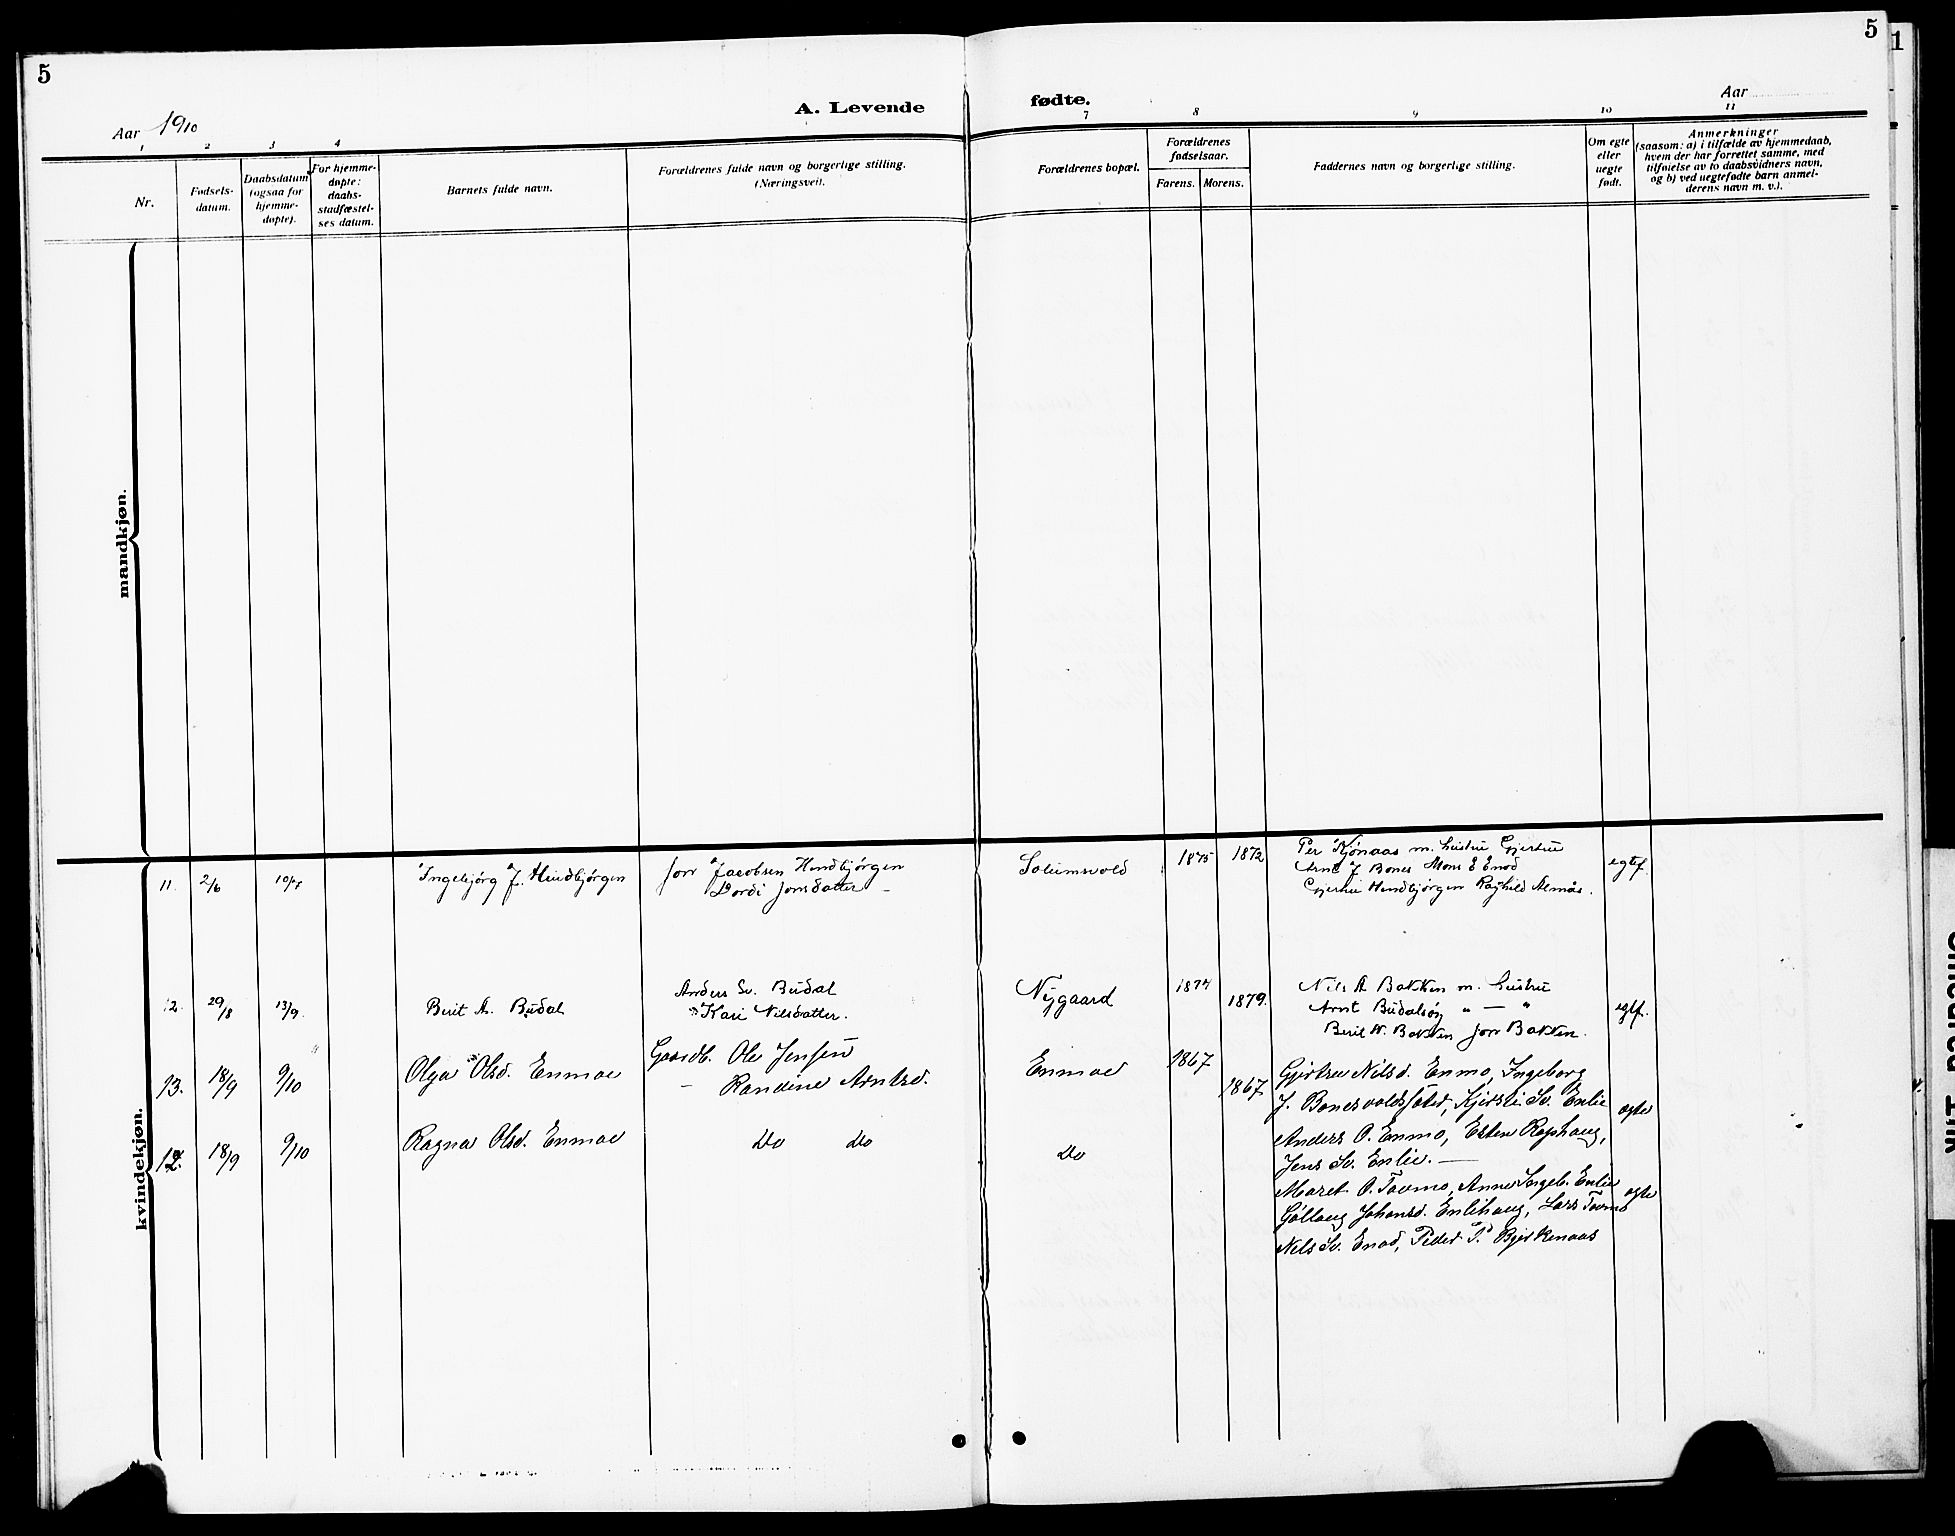 5
5
1
Aar 1910
A. Levende fødte.
Aar
1 2 3 4 7 8 9 10 11
Nr.
Fødsels-
datum.
Daabsdatum
(ogsaa for
hjemme-
døpte).
For hjemme-
døpte:
daabs-
stadfæstel-
ses datum.
Barnets fulde navn.
Forældrenes fulde navn og borgerlige stilling.
(Næringsvei).
Forældrenes bopæl.
Forældrenes
fødselsaar.
Farens. Morens.
Faddernes navn og borgerlige stilling.
Om egte
eller
uegte
født.
Anmerkninger
(saasom: a) i tilfælde av hjemmedaab,
hvem der har forrettet samme, med
tilføielse av to daabsvidners navn,
og b) ved uegtefødte barn anmel-
derens navn m. v.).
mandkjøn.
kvindekjøn.
11. 2/6 10/7 Ingebjörg J. Hindbjørgen
Jon Jacobsen Hindbjørgen
Dordi Jonsdatter
Solemsvold 1875 1872
Per Kjønaas m. hustru Gjertru
Arnt J Bones Mons E Enod
Gjertru Hindbjørgen Raghild Almås.
egtf.
12. 29/8 13/9. Berit A. Budal
Anders Sv. Budal
Kari Nilsdatter.
Nygaard 1874 1879.
Nils A Bakken m. hustru
Arnt Budalsøy " — "
Berit N. Bakken Jon Bakken.
egtf.
13. 18/9 9/10 Olga Olsd. Enmoe
Gaardb. Ole Jensen
— Randine Arntsd.
Enmoe 1867 1867
Gjertru Nilsd. Enmo, Ingeborg
J. Bonesvoldsæter, Kjersti Sv. Enlie
Anders O. Enmo, Esten Raphaug,
Jens Sv. Enlie. —
egte
18/9 9/10 Ragna Olsd. Enmoe
Do Do
Do
Maret O. Tovmo, Anne Ingeb. Enlie
Gøllaug Johansd. Enlihaug, Lars Tovmo
Nils Sv. Enod, Peder P. Bjerkenaas
egte